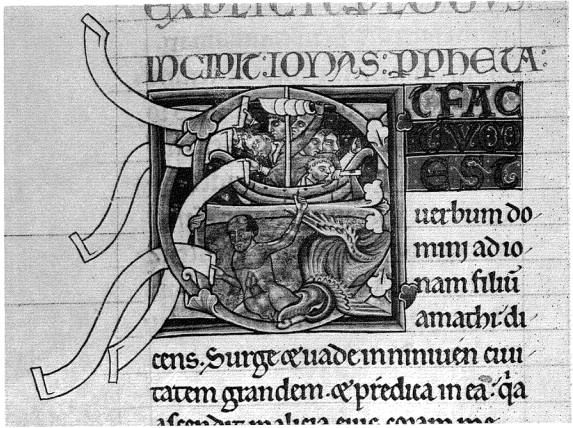 EXPLICIT PLOGUS.
INCIPIT: IONAS: PPHETA:
ET FAC
TVM
EST
uerbum do
mini ad io
nam filiū
amathi· di
cens. Surge & uade in niniuen ciui
tatem grandem· & predica in ea: q̄a
ascendit malicia eius coram me